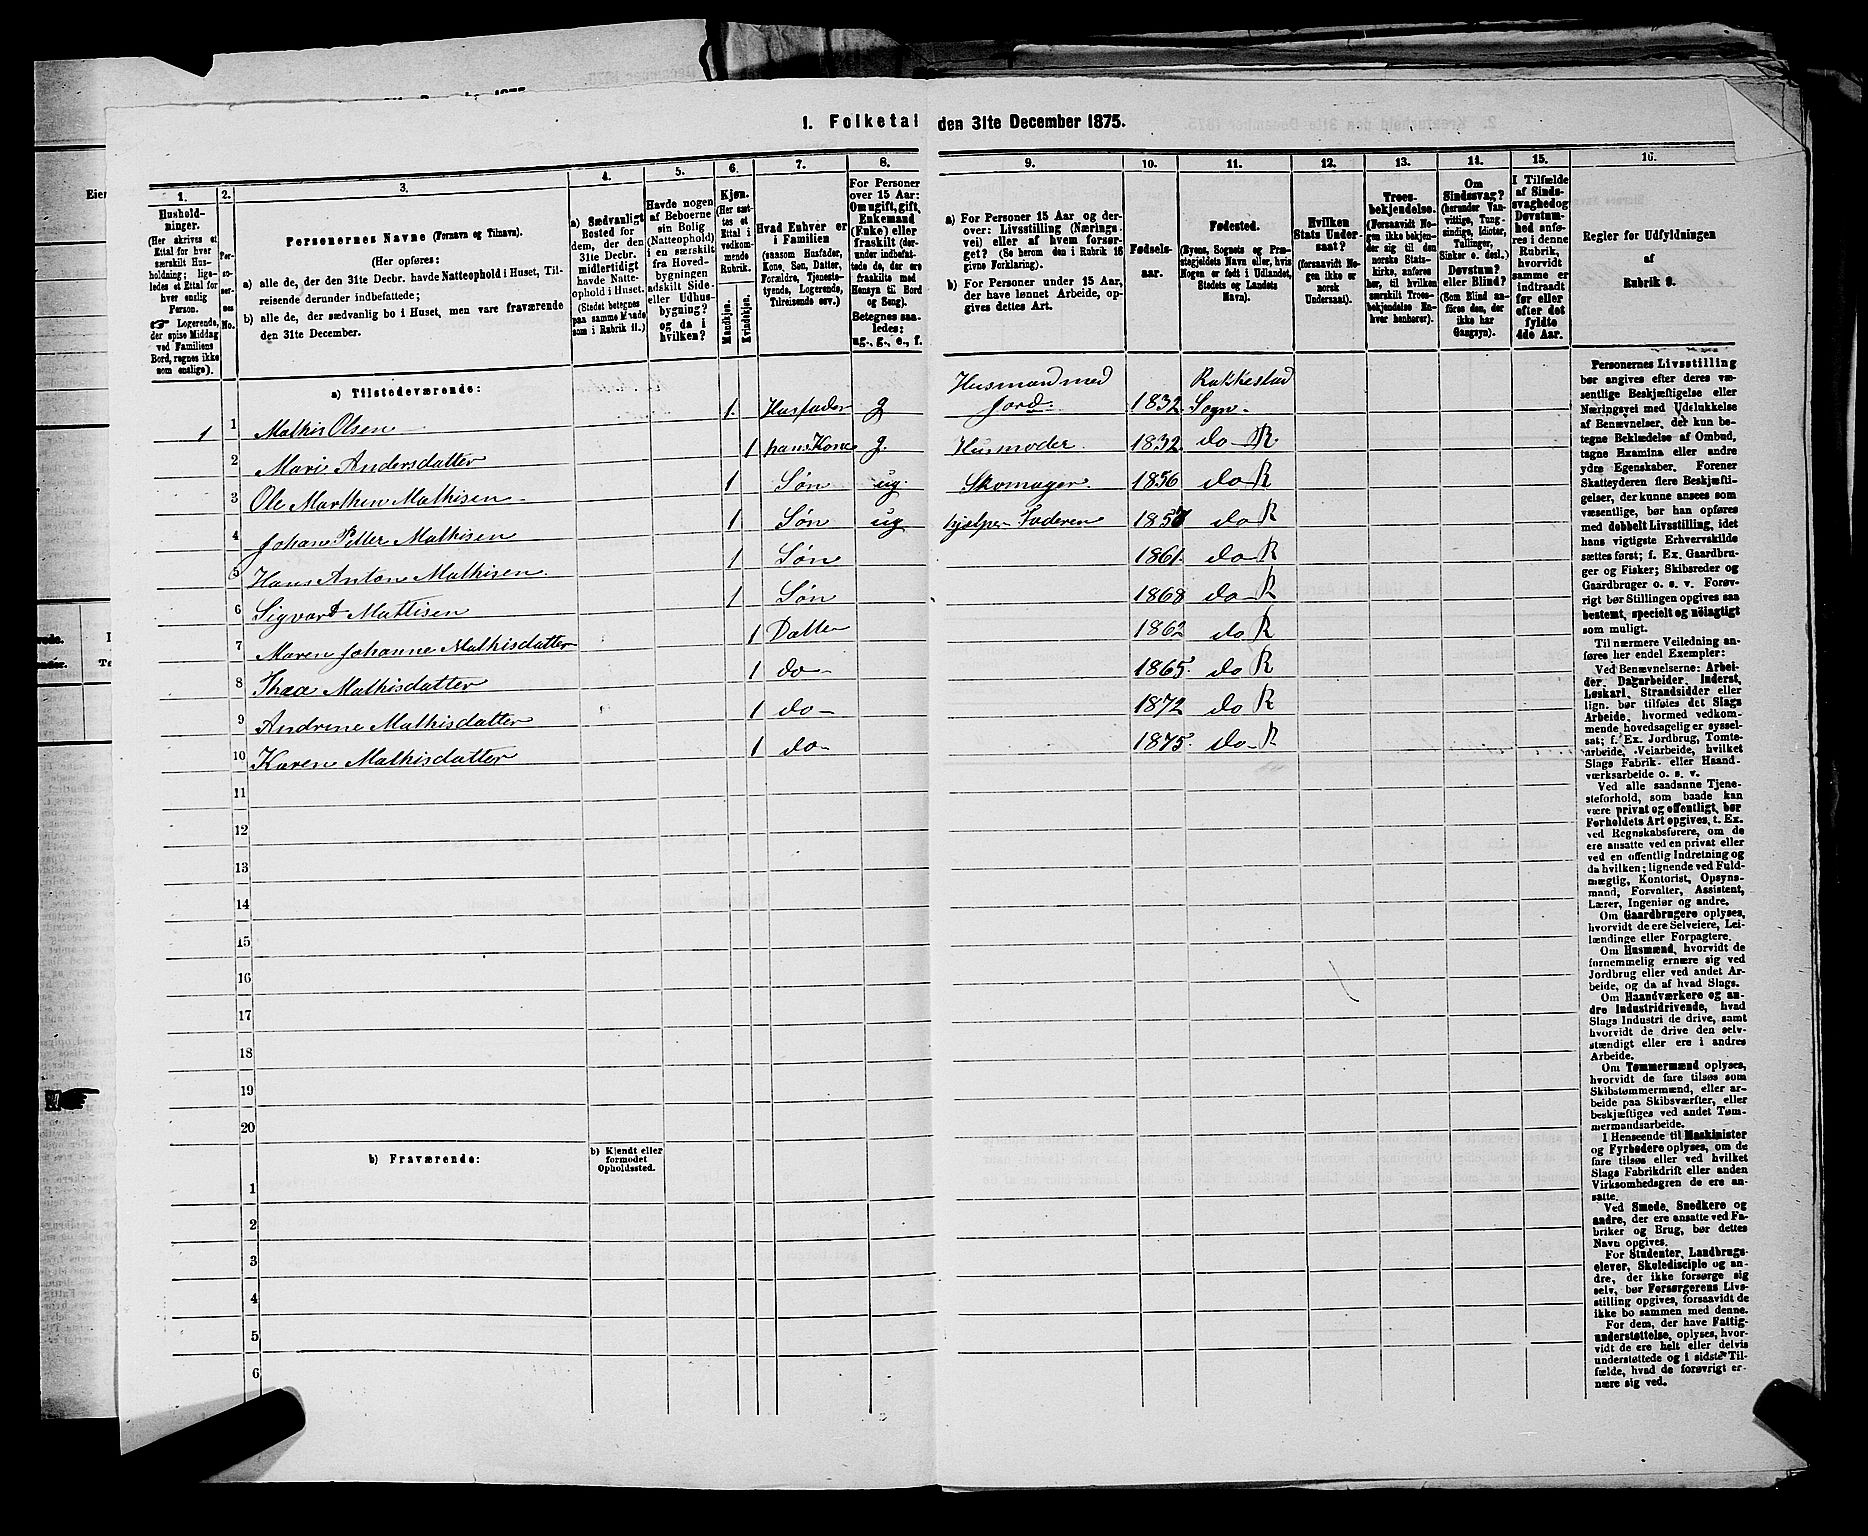 1. Folketal den 31te December 1875.
1.
2.
3.
4.
5.
6.
7.
8.
9.
10.
11.
12.
13.
14.
15.
16.
Hushold-
ninger.
(Her skrives et
Ettal for hver
særskilt Hus-
holdning; lige-
ledes et Ettal for
hver enslig
Person.
☞ Logerende,
der spise Middag
ved Familiens
Bord, regnes ikke
som enslige).
Per-
so-
ner-
nes
No.
Personernes Navne (Fornavn og Tilnavn).
(Her opføres:
a) alle de, der den 31te Decbr. havde Natteophold i Huset, Til-
reisende derunder indbefattede;
b) alle de, der sædvanlig bo i Huset, men vare fraværende
den 31te December.
a) Sædvanligt
Bosted for
dem, der den
31te Decbr.
midlertidigt
havde Natte-
ophold i Huset.
(Stedet betegnes
paa samme Maade
som i Rubrik 11.)
Havde nogen
af Beboerne
sin Bolig
(Natteophold)
i en særskilt
fra Hoved-
bygningen
adskilt Side-
eller Udhus-
bygning?
og da i
hvilken?
Kjøn.
(Her sæt-
tes et
Ettal i
vedkom-
mende
Rubrik.
Mandkjøn.
Kvindekjøn.
Hvad Enhver er
i Familien
(saasom Husfader,
Kone, Søn, Datter,
Forældre, Tjeneste-
tyende, Logerende,
Tilreisende osv.)
For Personer
over 15 Aar:
Om ugift, gift,
Enkemand
(Enke) eller
fraskilt (der-
under indbefat-
tede de, der ere
fraskilte med
Hensyn til Bord
og Seng).
Betegnes saa-
ledes:
ug., g., e., f.
a) For Personer 15 Aar og der-
over: Livsstilling (Nærings-
vei) eller af hvem forsør-
get? (Se herom den i Rubrik 16
givne Forklaring).
b) For Personer under 15 Aar,
der have lønnet Arbeide, op-
gives dettes Art.
Fødsels-
aar.
Fødested.
(Byens, Sognets og Præ-
stegjeldets Navn eller, hvis
Nogen er født i Udlandet,
Stedets og Landets
Navn).
Hvilken
Stats Under-
saat?
(forsaavidt No-
gen ikke er
norsk
Undersaat).
Troes-
bekjendelse.
(Forsaavidt No-
gen ikke bekjen-
der sig til den
norske Stats-
kirke, anføres
her, til hvilken
særskilt Troes-
bekjendelse En-
hver henhører).
Om
Sindssvag?
(herunder Van-
vittige, Tung-
sindige, Idioter,
Tullinger,
Sinker o. desl.)
Døvstum?
eller Blind?
(Som Blind an-
føres den, der
ikke har
Gangsyn).
I Tilfælde
af Sinds-
svaghed og
Døvstum-
hed anfø-
res i denne
Rubrik,
hvorvidt
samme er
indtraadt
før eller
efter det
fyldte
4de Aar.
Regler for Udfyldningen
af
Rubrik 9.
a) Tilstedeværende:
1 1 Mathis Olsen 1. Husfader g Husmand med Jord 1832 Rakkestad Sogn
2 Mari Andersdatter 1 hans Kone g. Husmoder 1832 do R
3 Ole Marthin Mathisen 1 Søn ug. Skomager. 1856 do R
4 Johan Petter Mathisen 1 Søn ug hjelper Faderen 1857 do R
5 Hans Anton Mathisen 1 Søn 1861. do R
6 Sigvart Mattisen 1 Søn 1868 do R
7 Maren Johanne Mathisdatter 1 Datter 1862 do R
8 Thea Mathisdatter 1 do 1865. do R
9 Andrine Mathisdatter 1 do 1872 do R
10 Karen Mathisdatter 1 do 1875. do R
11
12
13
14
15
16
17
18
19
20
b) Fraværende:
b) Kjendt eller
formodet
Opholdssted.
1
2
3
4
5
6
Personernes Livsstilling
bør angives efter deres væ-
sentlige Beskjæftigelse eller
Næringsvei med Udelukkelse
af Benævnelser, der kun be-
tegne Beklædelse af Ombud,
tagne Examina eller andre
ydre Egenskaber. Forener
Skatteyderen flere Beskjæfti-
gelser, der kunne ansees som
væsentlige, bør han opføres
med dobbelt Livsstilling, idet
hans vigtigste Erhvervskilde
sættes først; f. Ex. Gaardbru-
ger og Fisker; Skibsreder og
Gaardbruger o. s. v. Forøv-
rigt bør Stillingen opgives saa
bestemt, specielt og nøiagtigt
som muligt.
Til nærmere Veiledning an-
føres her endel Exempler:
Ved Benævnelserne: Arbei-
der, Dagarbeider, Inderst,
Løskarl, Strandsidder eller
lign. bør tilføies det Slags
Arbeide, hvormed vedkom-
mende hovedsagelig er syssel-
sat; f. Ex. Jordbrug, Tomte-
arbeide, Veiarbeide, hvilket
Slags Fabrik- eller Haand-
værksarbeide o. s. v.
Ved alle saadanne Tjene-
steforhold, som baade kan
være privat og offentligt, bør
Forholdets Art opgives, t. Ex.
ved Regnskabsførere, om de
ere ansatte ved en privat eller
ved en offentlig Indretning og
da hvilken; lignende ved Fuld-
mægtig, Kontorist, Opsyns-
mand, Forvalter, Assistent,
Lærer, Ingeniør og andre.
Om Gaardbrugere oplyses,
hvorvidt de ere Selveiere, Lei-
lændinge eller Forpagtere.
Om Husmænd, hvorvidt de
fornemmelig ernære sig ved
Jordbrug eller ved andet Ar-
beide, og da af hvad Slags.
Om Haandværkere og an-
dre Industridrivende, hvad
Slags Industri de drive, samt
hvorvidt de drive den selv-
stændigt eller ere i andres
Arbeide.
Om Tømmermænd oplyses,
hvorvidt de fare tilsøs som
Skibstømmermænd, eller ar-
beide paa Skibsværfter, eller
beskjæftiges ved andet Tøm-
mermandsarbeide.
I Henseende til Maskinister
og Fyrbødere oplyses, om de
fare tilsøs eller ved hvilket
Slags Fabrikdrift eller anden
Virksomhedsgren de ere an-
satte.
Ved Smede, Snedkere og
andre, der ere ansatte ved Fa-
briker og Brug, bør dettes
Navn opgives.
For Studenter, Landbrugs-
elever, Skoledisciple og an-
dre, der ikke forsørge sig
selv, bør Forsørgerens Livs-
stilling opgives, forsaavidt de
ikke bo sammen med denne.
For dem, der have Fattig-
understøttelse, oplyses, hvor-
vidt de ere helt eller delvis
understøttede og i sidste Til-
fælde, hvad de forøvrigt er-
nære sig ved.